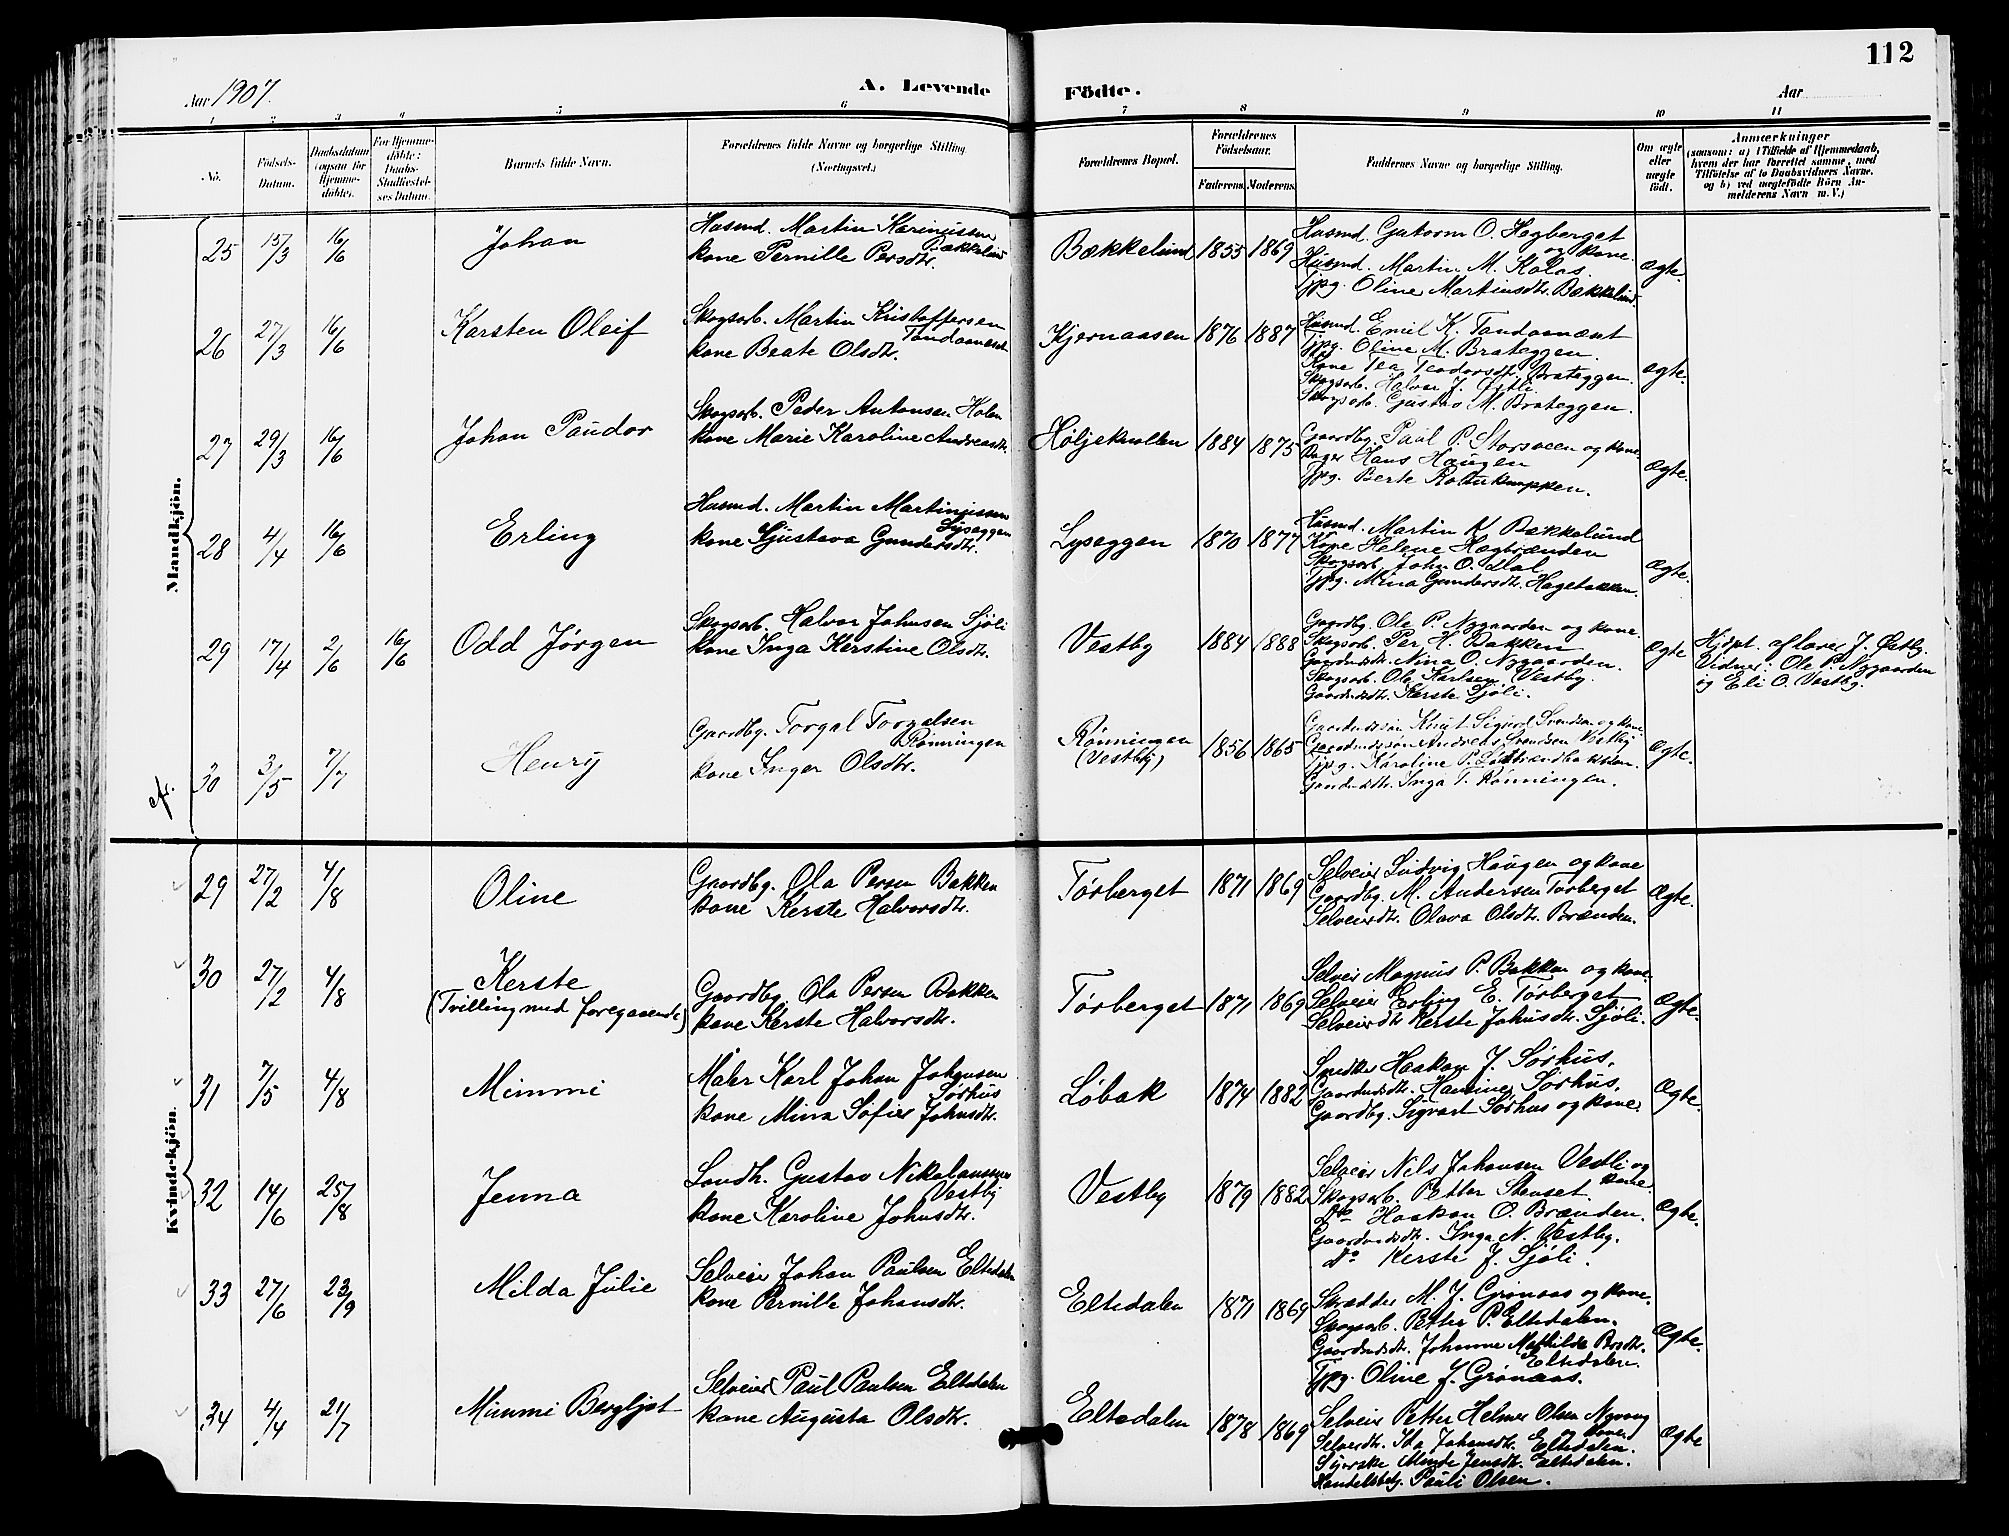 112
Aar 1907.
A. Levende Födte.
Aar
1 2 3 4 5 6 7 8 9 10 11
No.
Födsels-Datum.
Daabsdatum (ogsaa for Hjemmedöbte).
For Hjemmedöbte: Daabs-Stadfæstelses Datum.
Barnets fulde Navn.
Forældrenes fulde Navne og borgerlige Stilling (Næringsvei.)
Forældrenes Bopæl.
Forældrenes Födselsaar.
Faderens. Moderens.
Faddernes Navne og borgerlige Stilling.
Om ægte eller uægte födt.
Anmærkninger
(saasom: a) i Tilfælde af Hjemmedaab,
hvem der har forrettet samme, med
Tilföielse af to Daabsvidners Navne,
og b) ved uægtefödte Börn Anmelderens Navn m. V.)
Mandkjön.
25 15/3 16/6 Johan
Husmd. Martin Karinussen Bækkelund
kone Pernille Persdtr.
Bækkelund 1855 1869
Husmd. Gutorm O. Hegberget og kone
Husmd. Martin M. Kolos.
Tjpg. Oline Martinsdtr. Bækkelund
Ægte.
26 27/3 16/6 Karsten Oleif
Skogsarb. Martin Kristoffersen Tandaanæset
kone Beate Olsdtr.
Kjernaasen 1876 1887
Husmd. Emil K. Tandaanæset
Tjpg. Oline M. Brateggen.
Kone Tea Teodorsdtr. Brateggen.
Skogsarb. Halvor J.
Skogsarb. Gustav M. Brateggen.
Ægte.
27 29/3 16/6 Johan Paudor
Skogsarb. Peder Antonsen Holen
kone Marie Karoline Andreasdtr.
Høljeknollen 1884 1875
Gaardbg. Paul P. Storsveen og kone
Hans Haugen
Tjpg. Berte
Ægte.
28 4/4 16/6 Erling
Husmd. Martin Martinussen Lyseggen
kone Gjustava Gundersdtr.
Lyseggen 1870 1877
Husmd. Martin K. Bækkelund
Kone Helene Hægbrænden
Skogsarb. John O. Dal
Tjpg. Mina Gundersdtr. Hagebakken.
Ægte.
29 17/4 2/6 16/6 Odd Jørgen
Skogsarb. Halvor Johnsen Sjöli
kone Inga Kerstine Olsdtr.
Vestby 1884 1888
Gaardbg. Ole P. Nygaarden og kone.
Skogsarb. Per H. Bakken
Gaardmdsdtr. Nina O. Nygaarden.
Skogsarb. Ole Karlsen Vestby.
Gaardmdsdtr. Kerste Sjöli.
Ægte
Hjdpt. af lærer J. Østby.
Vidner: Ole P. Nygaarden
og Eli O. Vestby.
30 3/5 7/7 Henry
Gaardbg. Torgal Torgalsen Rönningen
kone Inger Olsdtr.
Rönningen (Vestby) 1856 1865
Gaardmdssön Knut Sigurd Svendsen og kone
Gaardmdssön Andreas Svendsen Vestby
Tjpg. Karoline P.
Gaardmdsdtr. Inga T. Rönningen.
Ægte.
Kvindekjön.
29 27/2 4/8 Oline
Gaardbg. Ola Persen Bakken
kone Kerste Halvorsdtr.
Törberget 1871 1869
Selveier Ludvig Haugen og kone
Gaardbg. M. Andersen Törberget
Selveierdtr. Olava Olsdtr. Brænden.
Ægte.
30 27/2 4/8 Kerste
(Tvilling med foregaaende)
Gaardbg. Ola Persen Bakken
kone Kerste Halvorsdtr.
Törberget 1871 1869
Selveier Magnus P. Bakken og kone.
Selveier Erling E. Törberget
Selveierdtr. Kerste Johnsdtr. Sjöli.
Ægte.
31 7/5 4/8 Mimmi
Maler Karl Johan Johansen Sörhus
kone Mina Sofie Johnsdtr.
Löbak 1874 1882
Haakon J. Sörhus.
Gaardmdsdtr. Hansine Sörhus.
Gaardbg. Sigvart Sörhus og kone.
Ægte.
32 14/6 25/8 Jenna
Landh. Gustav Nikolaussen Vestby
kone Karoline Johnsdtr.
Vestby 1879 1882
Selveier Nils Johansen Vestli og kone.
Skogsarb. Petter Stenset.
Do Haakon O. Brænden.
Gaardmdsdtr. Inga N. Vestby.
Do Kerste J. Sjöli.
Ægte.
33 27/6 22/9 Milda Julie
Selveier Johan Paulsen Eltsdalen
kone Pernille Johansdtr.
Eltsdalen 1871 1869
Skrædder M. J. Grönaas og kone.
Skogsarb. Petter P. Eltsdalen.
Gaardmdsdtr. Johanne Mathilde Eltsdalen.
Tjpg. Oline J. Grönaas.
Ægte.
34 4/4 21/7 Mimmi Bergljot
Selveier Paul Paulsen Eltsdalen
kone Augusta Olsdtr.
Eltsdalen 1878 1869
Selveier Petter Helmer Olsen Nyvang og kone
Selveierdtr. Ida Johansdtr. Eltsdalen.
Syerske Minda Jensdtr. Eltsdalen.
Handelsbetj. Pauli Olsen.
Ægte